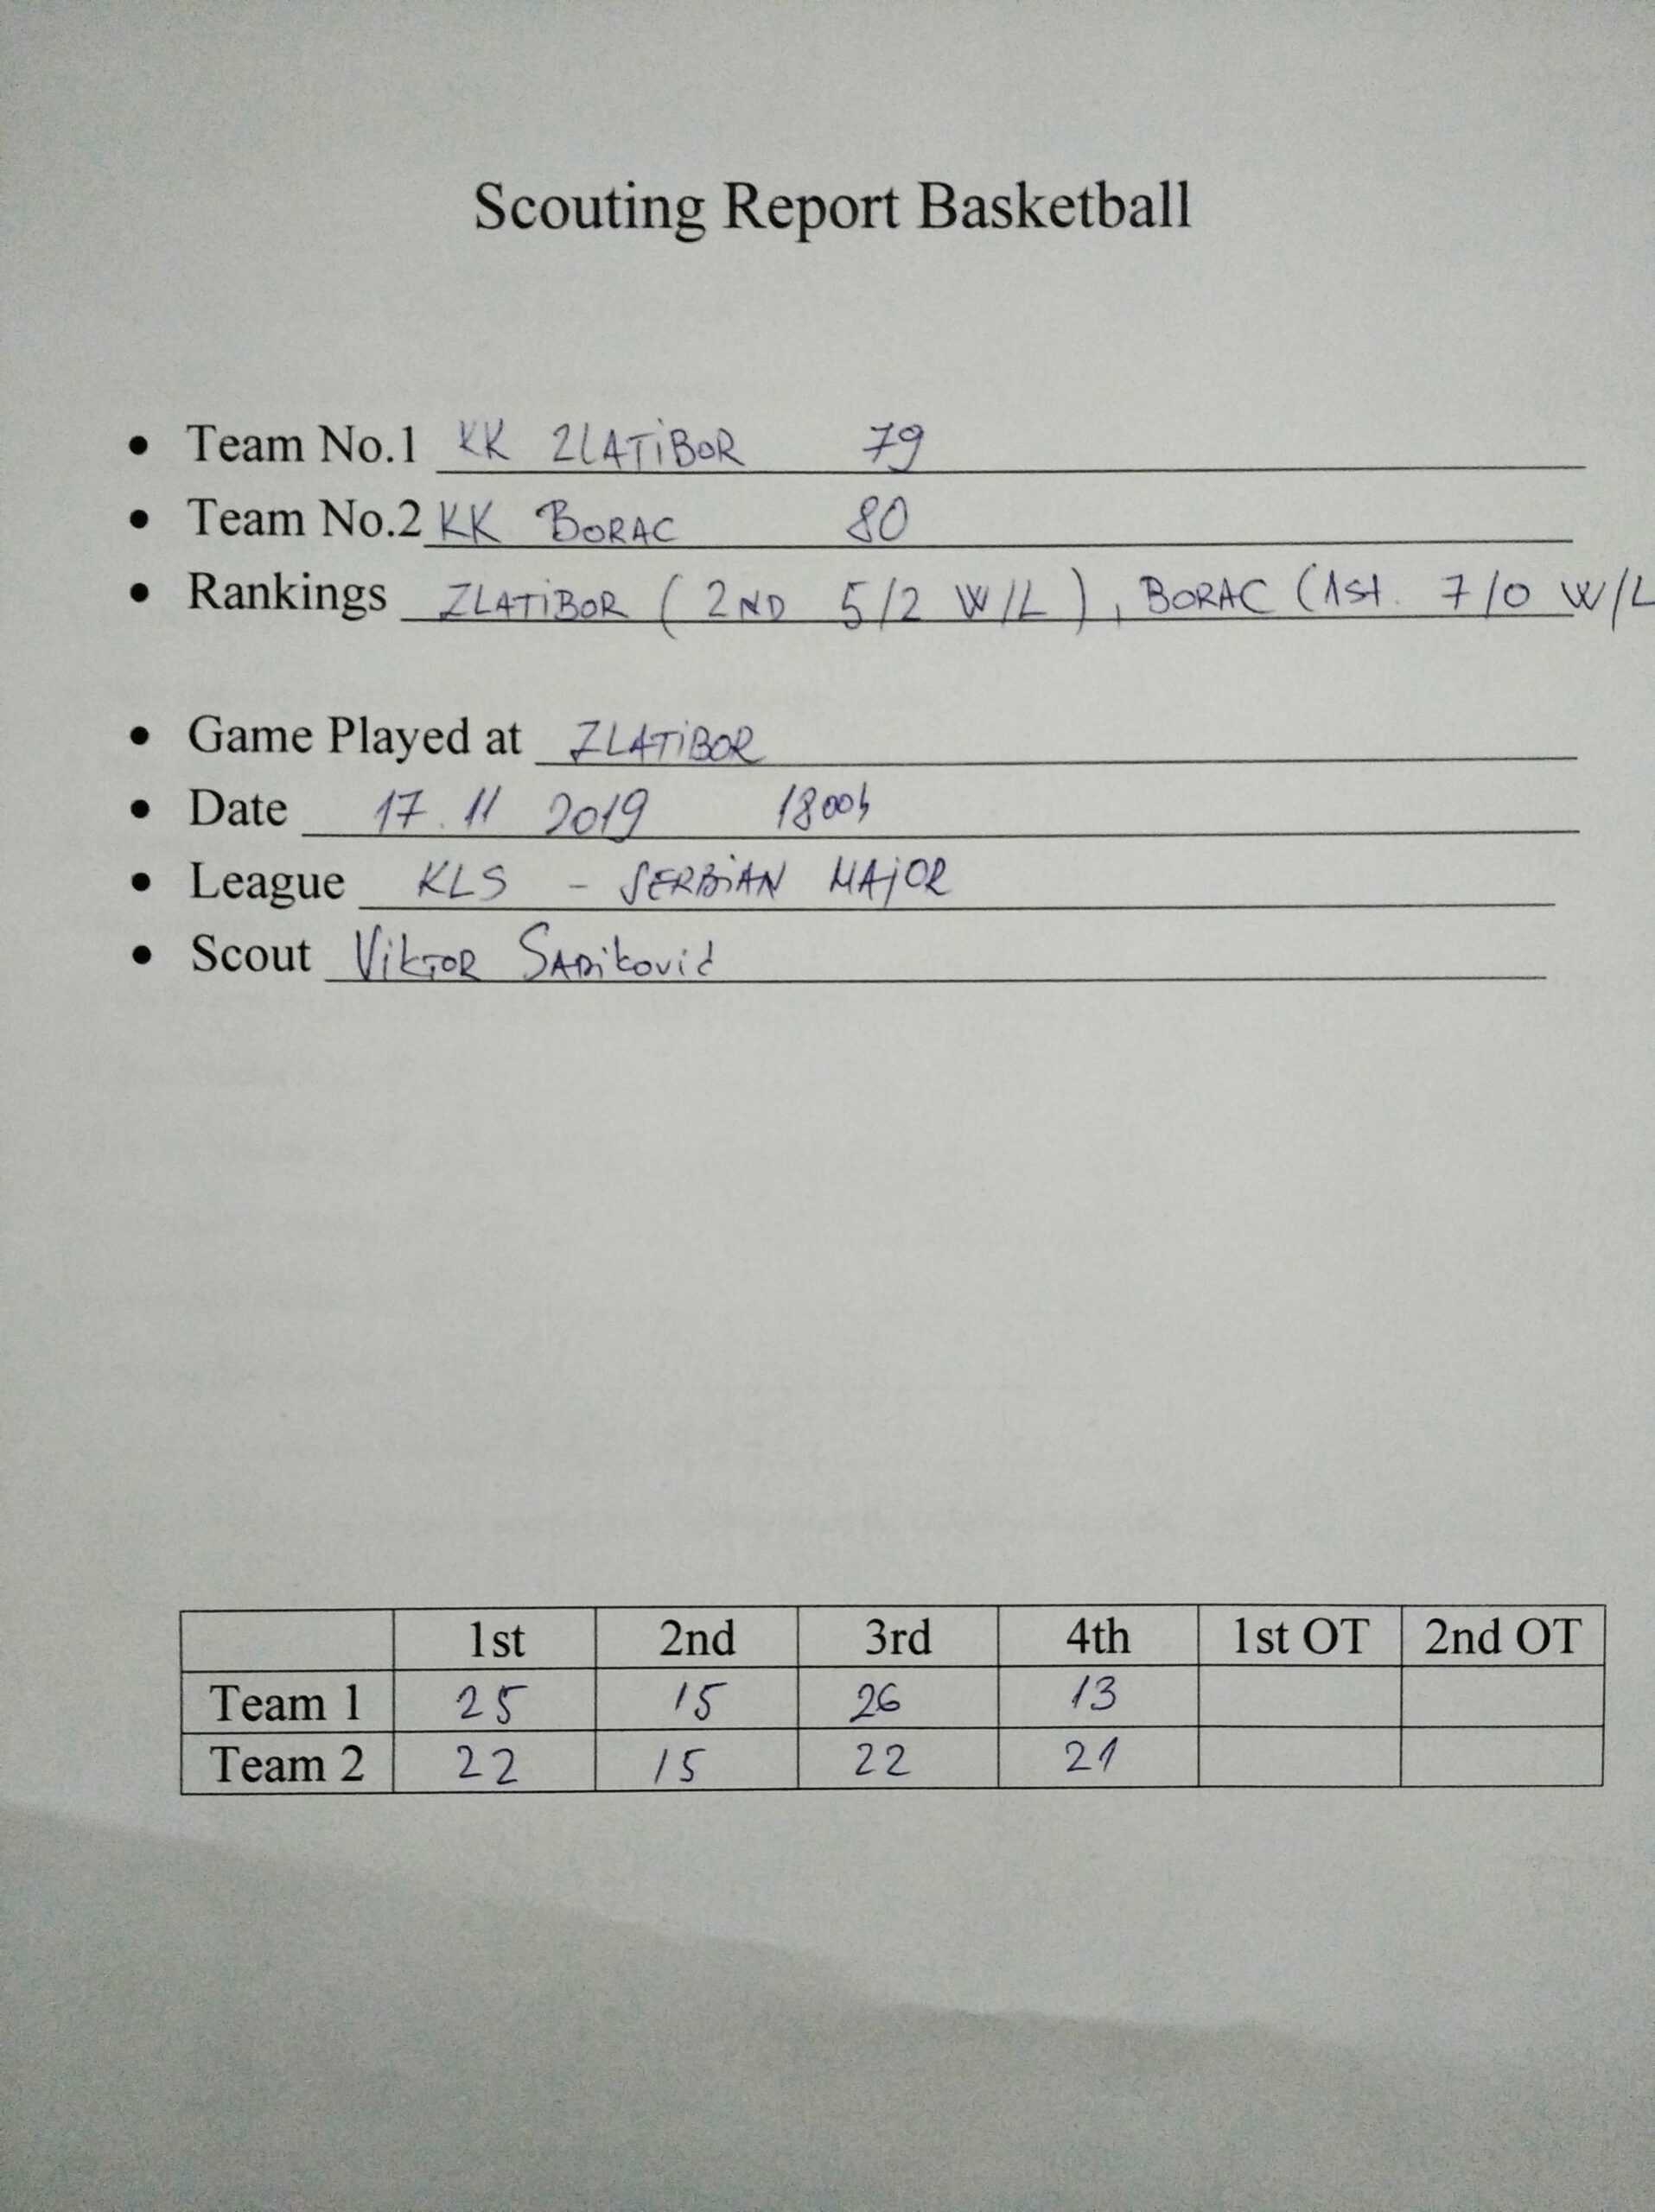 Scouting Report Basketball
• Team No.1 KK ZLATiBOR 79
• Team No.2 KK BORAC 80
• Rankings ZLATiBOR ( 2ND 5/2 W/L ), BORAC (1st. 7/0 W/L
• Game Played at ZLATiBOR
• Date 17. 11 2019 18 00h
• League KLS - SERBiAN MAjOR
• Scout Viktor Sadiković
1st 2nd 3rd 4th 1st OT 2nd OT
Team 1 25 15 26 13
Team 2 22 15 22 21